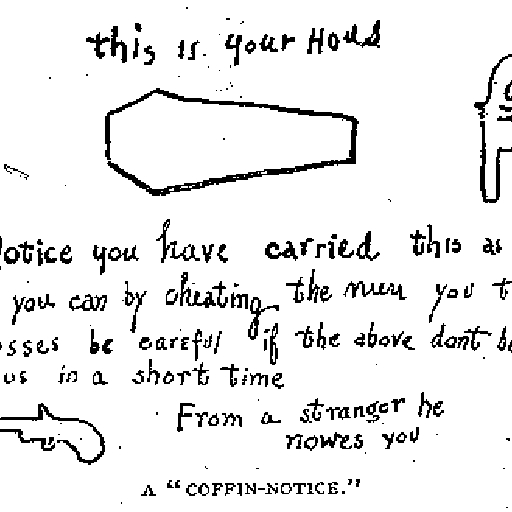 this is your Hous
Notice you have carried this as
you can by cheating the men you t
sses be careful if the above dont be
us in a short time
From a stranger he
nowes you
A "COFFIN-NOTICE."